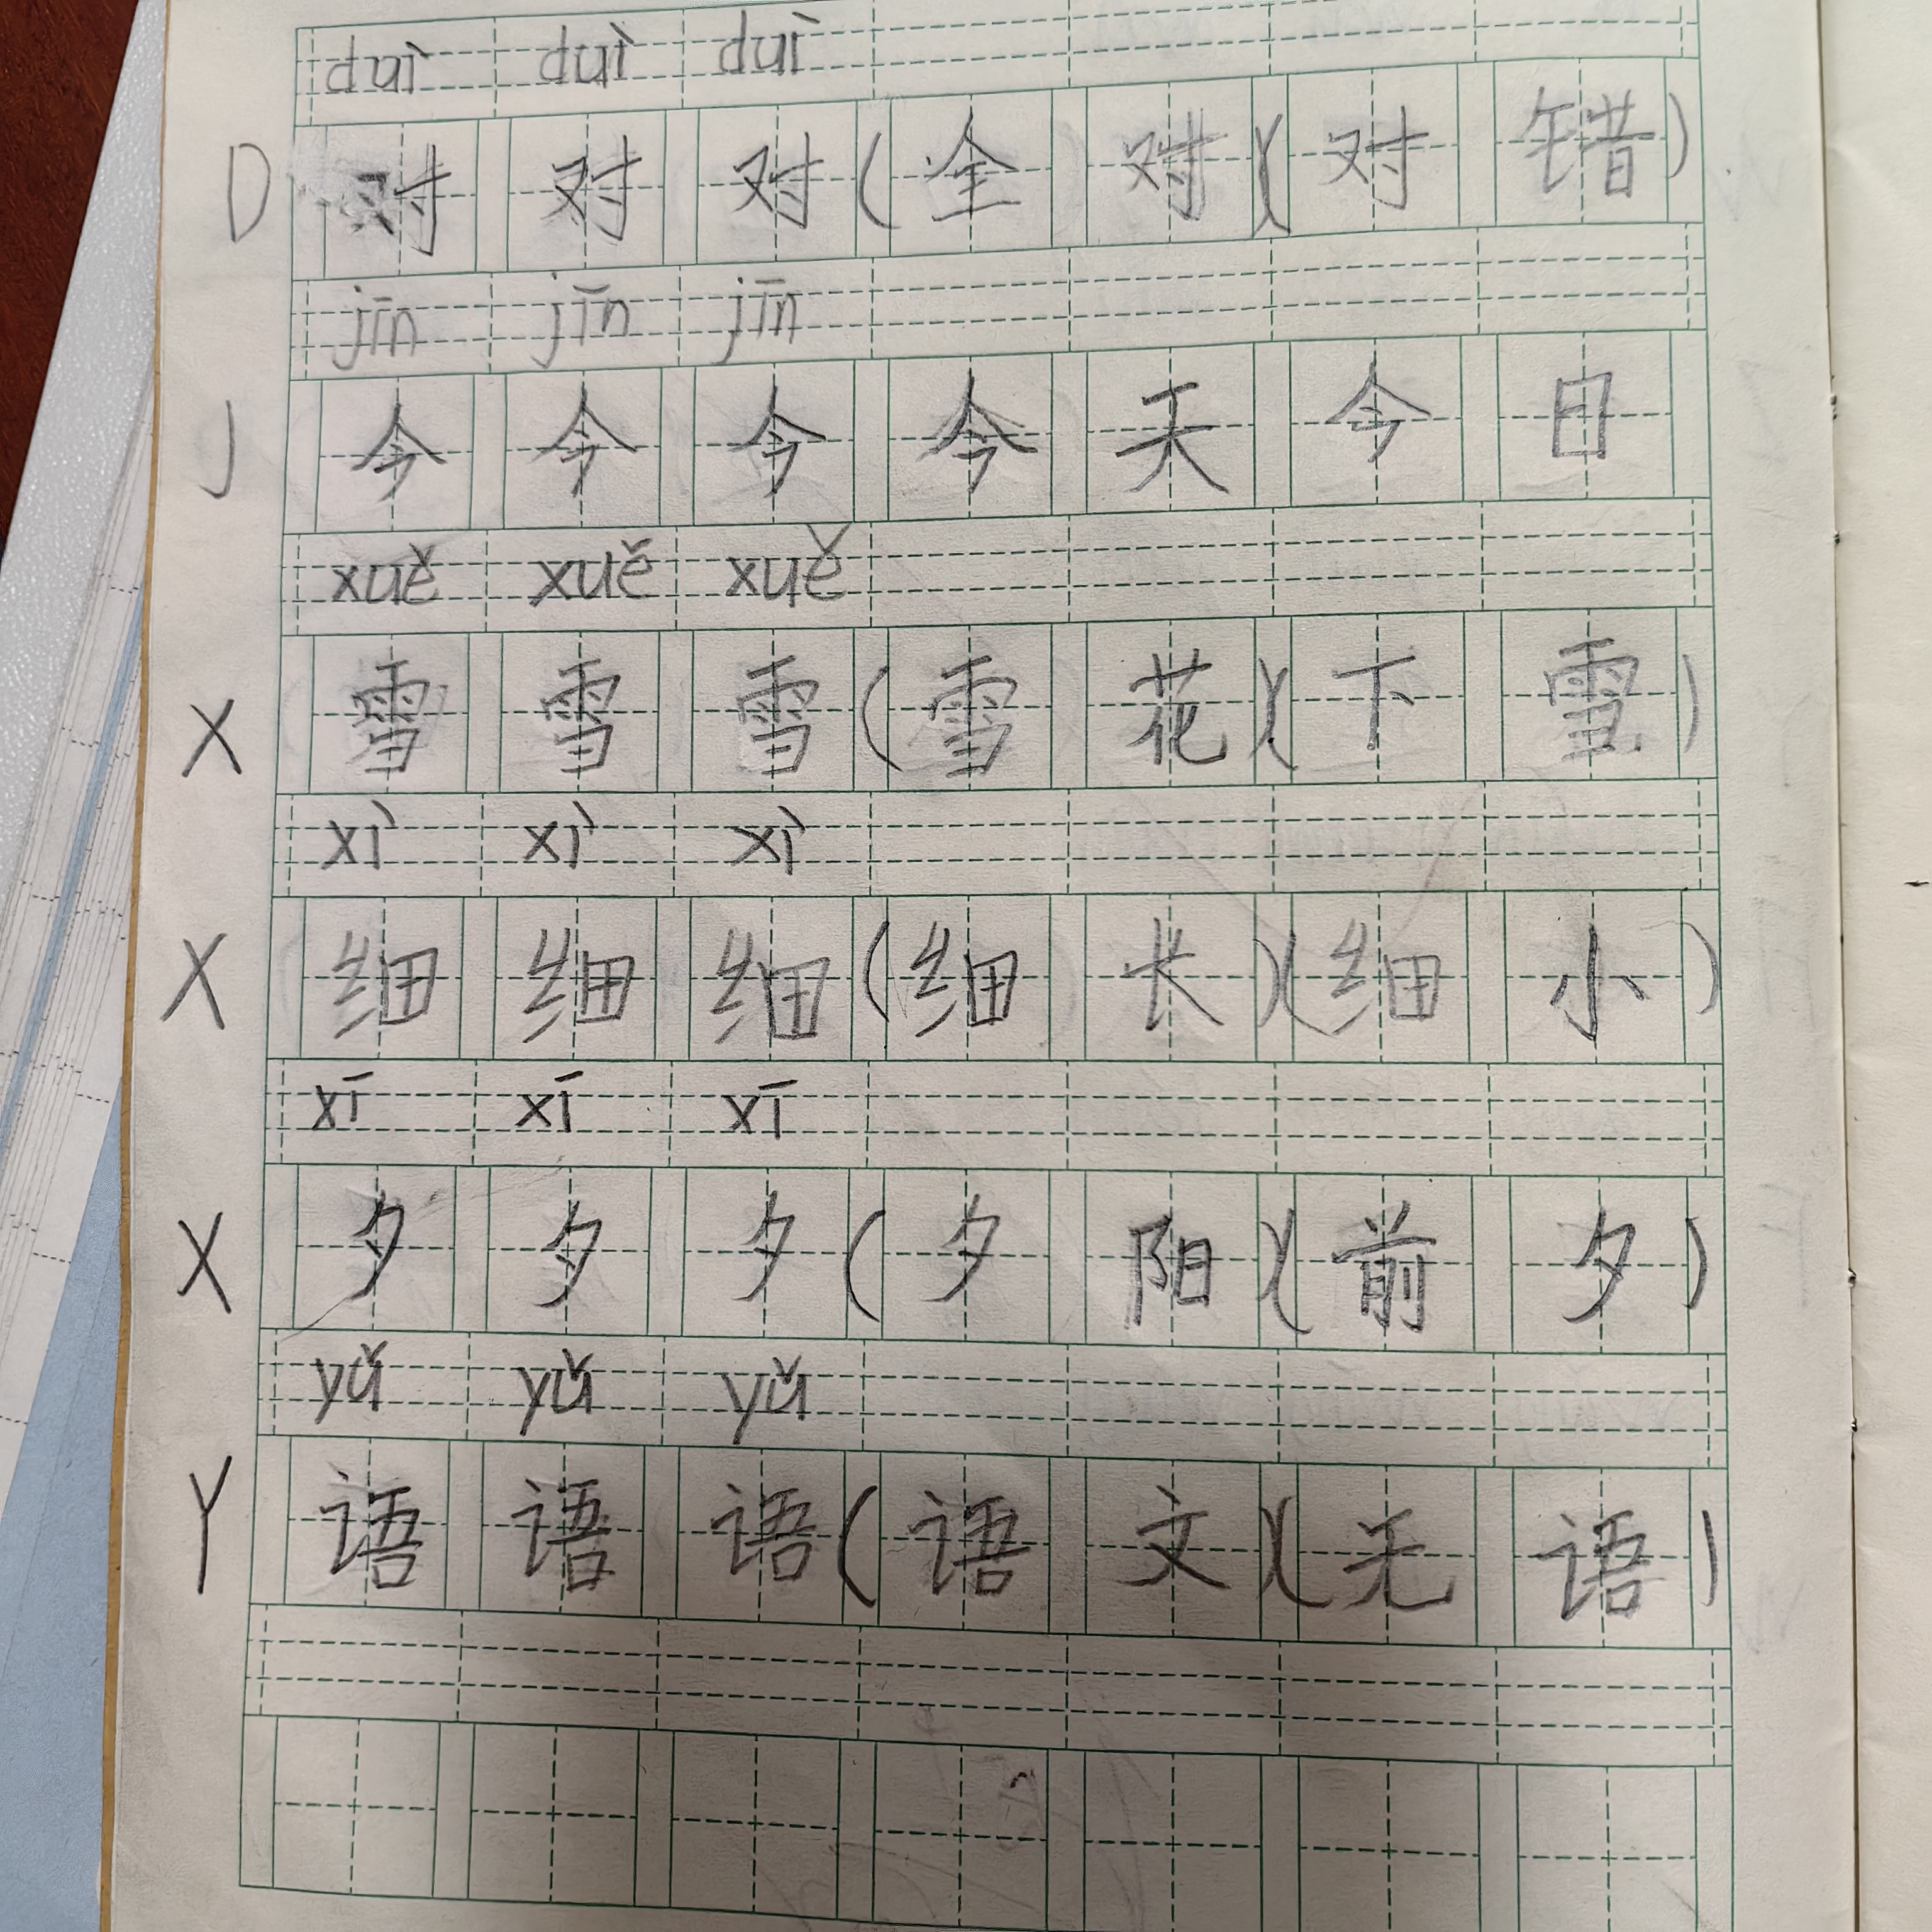 duì duì duì
D 对 对 对 (全 对)(对 错)
jīn jīn jīn
J 今 今 今 今 天 今 日
xuě xuě xuě
X 雪 雪 雪 (雪 花)(下 雪)
xì xì xì
X 细 细 细 (细 长)(细 小)
xī xī xī
X 夕 夕 夕 (夕 阳)(前 夕)
yǔ yǔ yǔ
Y 语 语 语 (语 文)(无 语)